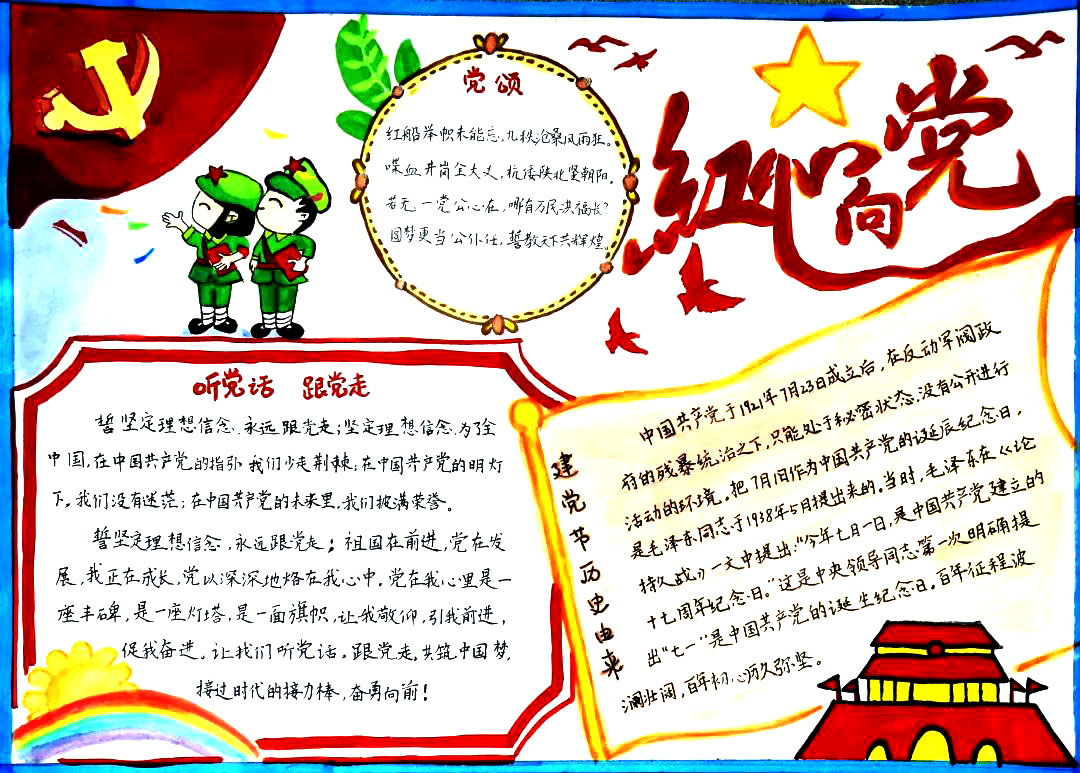 党颂
红船举帜未能忘,九秩沧桑风雨狂。
喋血井岗全大义,抗倭陕北坚朝阳。
若无一党公心在,哪有万民洪福长?
圆梦更当公仆任,誓教天下共辉煌。
红心向党
听党话 跟党走
誓坚定理想信念,永远跟党走;坚定理想信念,为了全
中国,在中国共产党的指引 我们少走荆棘;在中国共产党的明灯
下,我们没有迷茫;在中国共产党的未来里,我们披满荣誉。
誓坚定理想信念,永远跟党走;祖国在前进,党在发
展,我正在成长,党以深深地烙在我心中,党在我心里是一
座丰碑,是一座灯塔,是一面旗帜,让我敬仰,引我前进,
促我奋进。让我们听党话,跟党走,共筑中国梦,
接过时代的接力棒,奋勇向前!
建党节历史由来
中国共产党于1921年7月23日成立后,在反动军阀政
府的残暴统治之下,只能处于秘密状态,没有公开进行
活动的环境。把7月1日作为中国共产党的诞辰纪念日,
是毛泽东同志于1938年5月提出来的。当时,毛泽东在《论
持久战》一文中提出:“今年七月一日,是中国共产党建立的
十七周年纪念日。”这是中央领导同志第一次明确提
出“七一”是中国共产党的诞生纪念日。百年征程波
澜壮阔,百年初心历久弥坚。